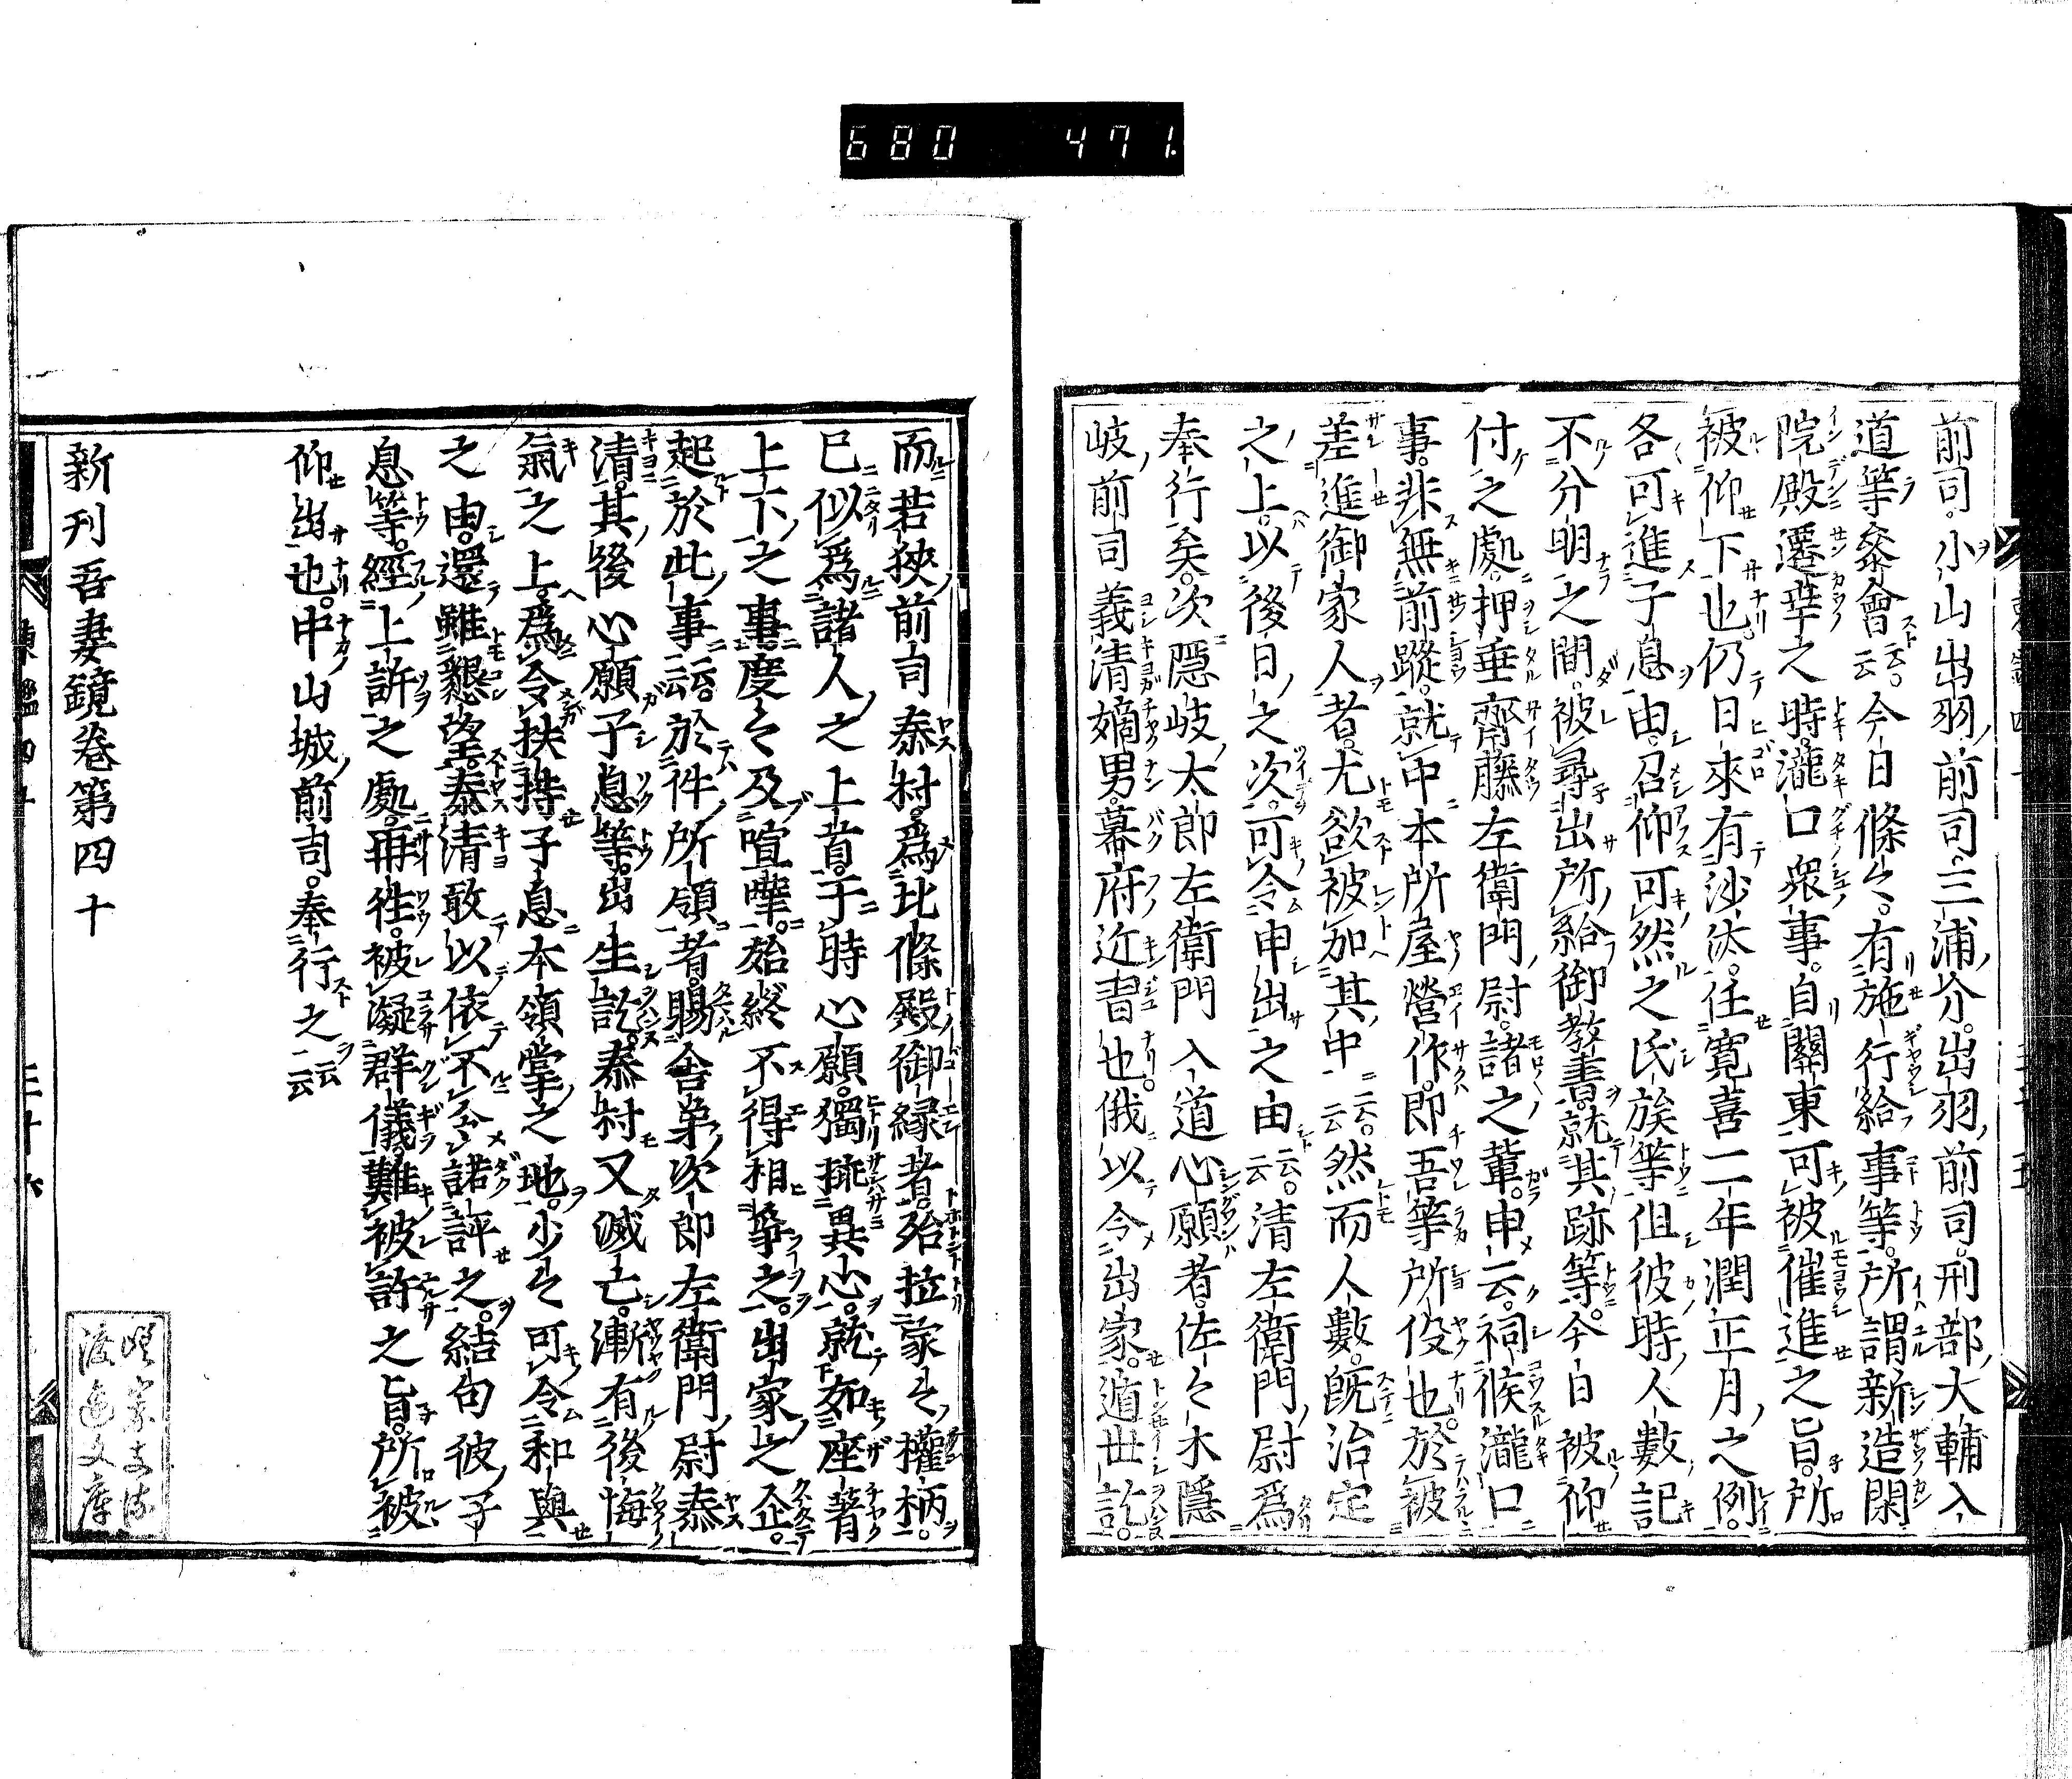 680 471
前司小山出羽前司三浦介出羽前司刑部大輔入
道等參會云云今日條々有施行給事等所謂新造閑
院殿遷幸之時瀧口衆事自關東可被催進之旨所
被仰下也仍日來有沙汰任寛喜二年潤正月之例
各可進子息由召仰可然之氏族等但彼時人數記
不分明之間被尋出所給御敎書就其跡等今日被仰
付之處押垂齋藤左衛門尉諸之輩申云祠候瀧口
事非無前蹤就中本所屋營作即吾等所役也於被
差進御家人者尤欲被加其中云云然而人數既治定
之上以後日之次可令申出之由云云清左衛門尉爲
奉行矣次隱岐太郎左衛門入道心願者佐々木隱
岐前司義清嫡男幕府近習也俄以令出家遁世訖
而若狹前司泰村爲比條殿御縁者殆拉家之權柄
已似爲諸人之上首于時心願獨插異心就如座著
上下之事度々及喧嘩始終不得相爭之出家之企
起於此事云云於件所領者賜舎弟次郎左衛門尉泰
清其後心願子息等出生訖泰村又滅亡漸有後悔
氣之上爲令扶持子息本領掌之地少々可令和與
之由還雖懇望泰清敢以依不令諾評之結句彼子
息等經上訴之處再往被凝群儀難被許之旨所被
仰出也中山城前司奉行之云云
新刊吾妻鏡卷第四十